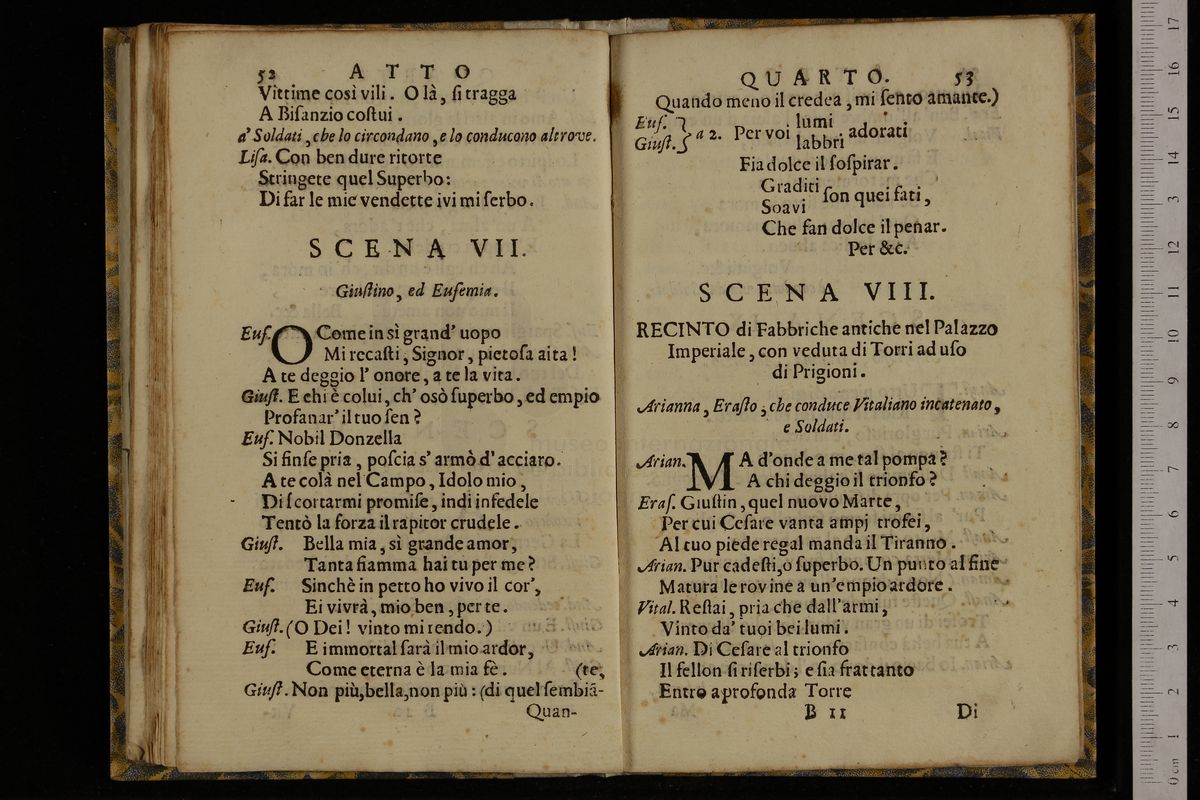 52 ATTO
Vittime così vili. Olà, ſi tragga
A Biſanzio coſtui.
a' Soldati, che lo circondano, e lo conducono altrove.
Liſa. Con ben dure ritorte
Stringete quel Superbo:
Di far le mie vendette ivi mi ſerbo.
SCENA VII.
Giuſtino, ed Eufemia.
Euf. O Come in sì grand' uopo
Mi recaſti, Signor, pietoſa aita!
A te deggio l' onore, a te la vita.
Giuſt. E chi è colui, ch' osò ſuperbo, ed empio
Profanar' il tuo ſen?
Euf. Nobil Donzella
Si finſe pria, poſcia s' armò d' acciaro.
A te colà nel Campo, Idolo mio,
Di ſcortarmi promiſe, indi infedele
Tentò la forza il rapitor crudele.
Giuſt. Bella mia, sì grande amor,
Tanta fiamma hai tu per me?
Euf. Sinchè in petto ho vivo il cor',
Ei vivrà, mio ben, per te.
Giuſt. (O Dei! vinto mi rendo.)
Euf. E immortal ſarà il mio ardor,
Come eterna è la mia fè. (te,
Giuſt. Non più, bella, non più: (di quel ſembiã-
Quan-
QUARTO. 53
Quando meno il credea, mi ſento amante.)
Euf. Giuſt. } a 2. Per voi lumi labbri adorati
Fia dolce il ſoſpirar.
Graditi Soavi ſon quei fati,
Che fan dolce il penar.
Per &c.
SCENA VIII.
RECINTO di Fabbriche antiche nel Palazzo
Imperiale, con veduta di Torri ad uſo
di Prigioni.
Arianna, Eraſto, che conduce Vitaliano incatenato,
e Soldati.
Arian. MA d'onde a me tal pompa?
A chi deggio il trionfo?
Eraſ. Giuſtin, quel nuovo Marte,
Per cui Ceſare vanta ampj trofei,
Al tuo piede regal manda il Tiranno.
Arian. Pur cadeſti, o ſuperbo. Un punto al fine
Matura le rovine a un' empio ardore.
Vital. Reſtai, pria che dall'armi,
Vinto da' tuoi bei lumi.
Arian. Di Ceſare al trionfo
Il fellon ſi riſerbi; e ſia frattanto
Entro a profonda Torre
B 11 Di